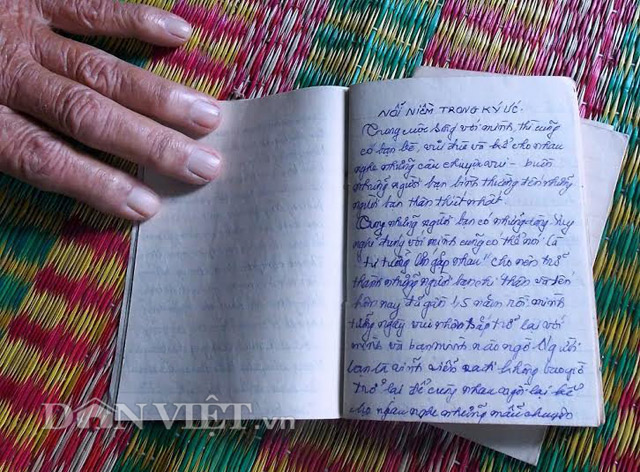 NỖI NIỀM TRONG KÝ ỨC.
Trong cuộc sống với mình, thì cũng
có bạn bè, vui đùa và kể cho nhau
nghe những câu chuyện vui - buồn
những người bạn bình thường đến những
người bạn thân thiết nhất.
Trong những người bạn có những suy
nghĩ đúng với mình cũng có thể nói là
"tư tưởng lớn gặp nhau" cho nên trở
thành những người bạn chí thân và đến
hôm nay đã gần 45 năm rồi mình
từng ngày vui nhộn sắp trở lại với
mình và bạn mình nào ngờ
bạn ra đi vĩnh viễn không bao giờ
trở lại để cùng nhau ngồi lại kể
cho nhau nghe những mẩu chuyện
DÂN VIỆT.vn